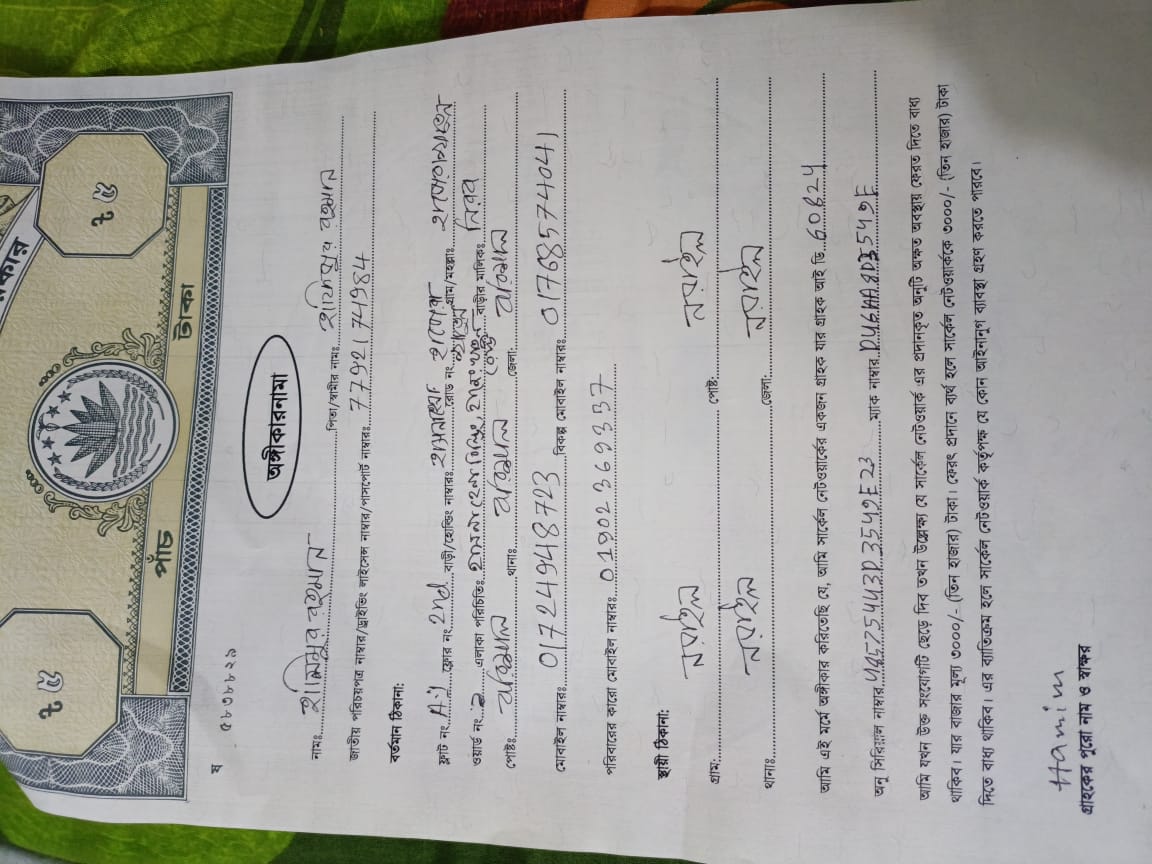 ৳ ৫
৳ ৫
পাঁচ টাকা
ষ ৫৮৩৮৮২৯
অঙ্গীকারনামা
নামঃ হামিমুর রহমান পিতা/স্বামীর নামঃ হাফিজুর রহমান
জাতীয় পরিচয়পত্র নাম্বার/ড্রাইভিং লাইসেন্স নাম্বার/পাসপোর্ট নাম্বারঃ 7792174984
বর্তমান ঠিকানা:
ফ্লাট নং ফ্লোর নং 2nd বাড়ী/হোল্ডিং নাম্বারঃ রোড নং গ্রাম/মহল্লাঃ
ওয়ার্ড নং এলাকা পরিচিতিঃ বাড়ীর মালিকঃ
পোষ্টঃ বরিশাল থানাঃ বরিশাল জেলা: বরিশাল
মোবাইল নাম্বারঃ 01724948723 বিকল্প মোবাইল নাম্বারঃ 01768574041
পরিবারের কারো মোবাইল নাম্বারঃ 01902369337
স্থায়ী ঠিকানা:
গ্রাম: নড়াইল পোষ্ট: নড়াইল
থানাঃ নড়াইল জেলা: নড়াইল
আমি এই মর্মে অঙ্গীকার করিতেছি যে, আমি সার্কেল নেটওয়ার্কের একজন গ্রাহক যার গ্রাহক আই ডি 60824
অনু সিরিয়াল নাম্বার ম্যাক নাম্বার
আমি যখন উক্ত সংযোগটি ছেড়ে দিব তখন উল্লেক্ষ্য যে সার্কেল নেটওয়ার্ক এর প্রদানকৃত অনুটি অক্ষত অবস্থায় ফেরত দিতে বাধ্য
থাকিব। যার বাজার মূল্য ৩০০০/- (তিন হাজার) টাকা। ফেরৎ প্রদানে ব্যর্থ হলে সার্কেল নেটওয়ার্ককে ৩০০০/- (তিন হাজার) টাকা
দিতে বাধ্য থাকিব। এর ব্যাতিক্রম হলে সার্কেল নেটওয়ার্ক কর্তৃপক্ষ যে কোন আইনানুগ ব্যাবস্থা গ্রহণ করতে পারবে।
Hamim
গ্রাহকের পুরো নাম ও স্বাক্ষর